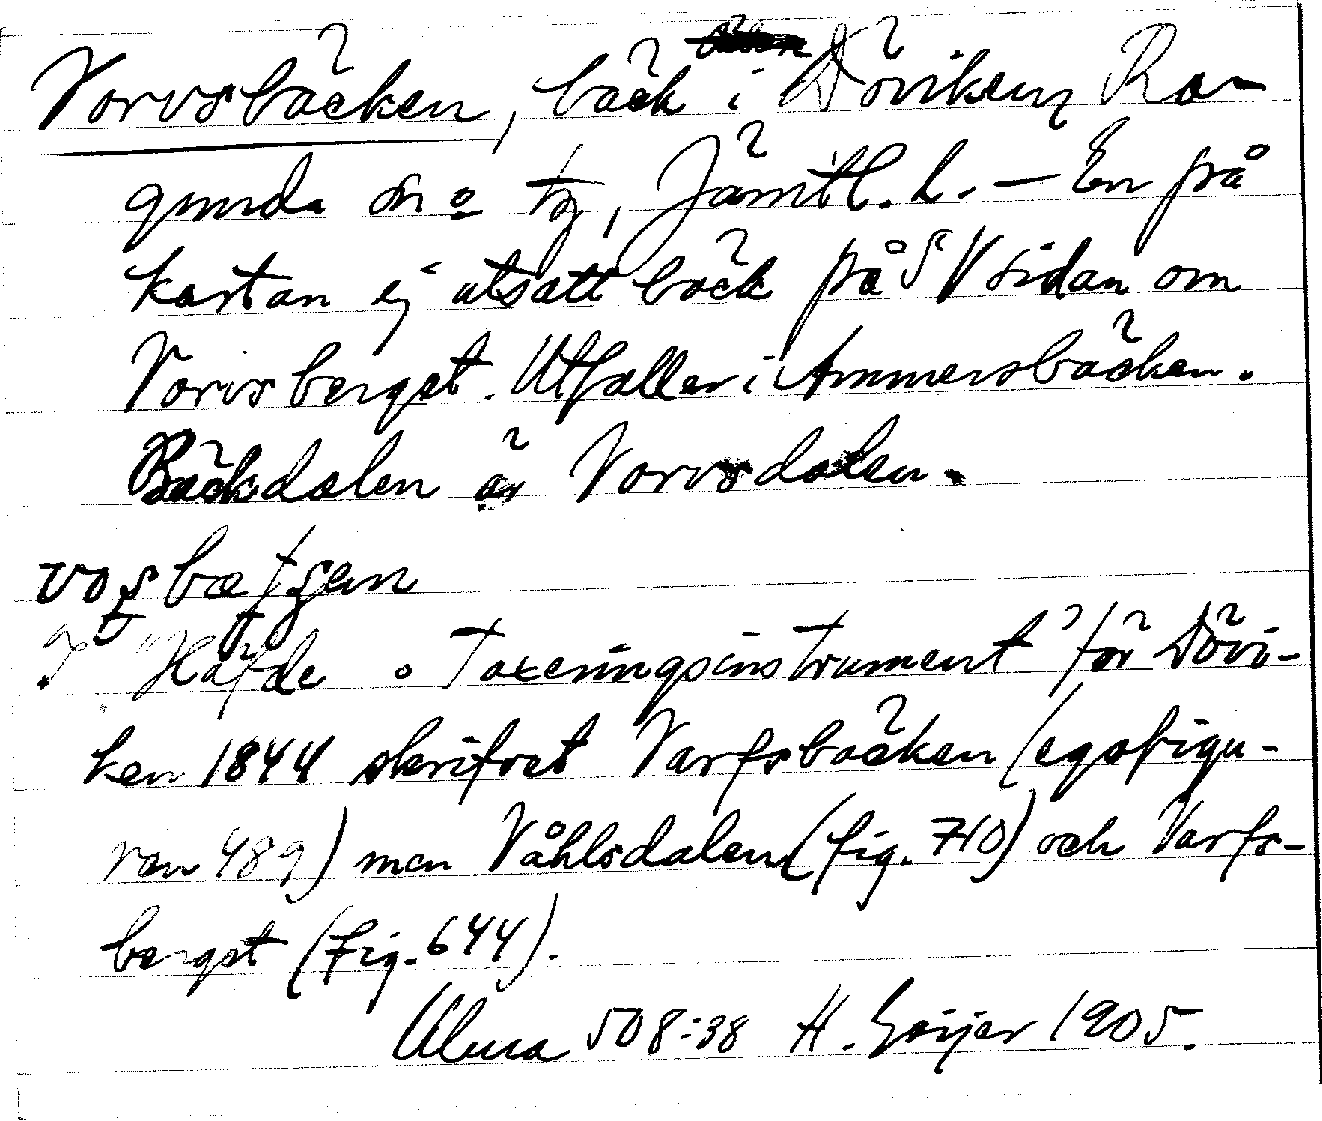 Vorvsbäcken, bäck i Döviken, Ra-
gunda sn o tg, Jämtl. l. – En på
kartan ej utsatt bäck på SV sidan om
Vorvsberget. Utfaller i Ammersbäcken.
Bäckdalen är Vorvsdalen.
I "Häfde o Taxeringsinstrument" för Dövi-
ken 1844 skrifvet Varfsbäcken (egofigu-
ran 489) men Våhlsdalen (fig. 710) och Varfs-
berget (fig. 644).
Ulma 508:38 H. Geijer 1905.